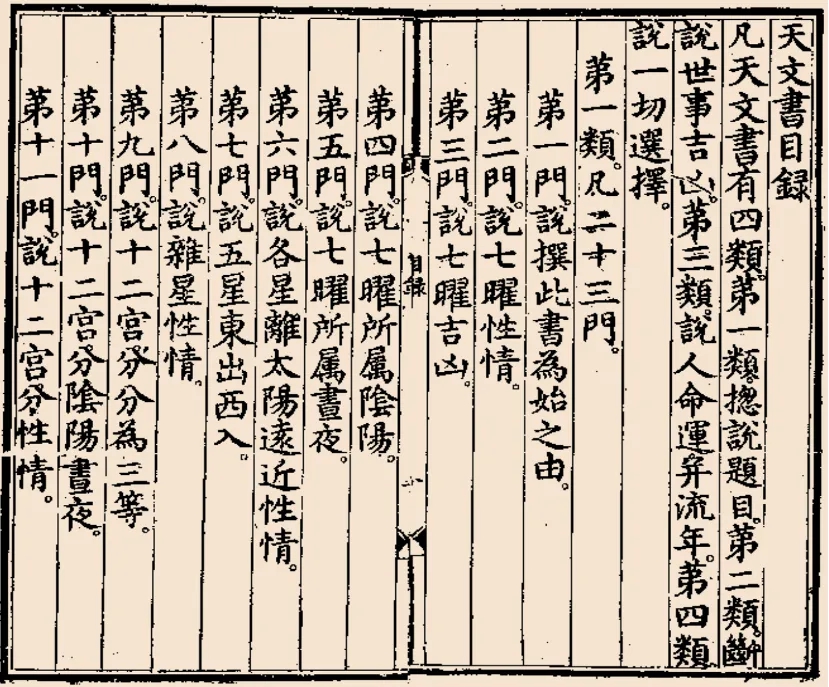 天文書目録
凡天文書有四類。第一類。揔說題目。第二類。斷
說世事吉凶。第三類。說人命運并流年。第四類
說一切選擇。
第一類。凡二十三門。
第一門。說撰此書為始之由。
第二門。說七曜性情。
第三門。說七曜吉凶。
目録
第四門。說七曜所属隂陽。
第五門。說七曜所属晝夜。
第六門。說各星離太陽遠近性情。
第七門。說五星東出西入。
第八門。說雜星性情。
第九門。說十二宫分分為三等。
第十門。說十二宫分隂陽晝夜。
第十一門。說十二宫分性情。